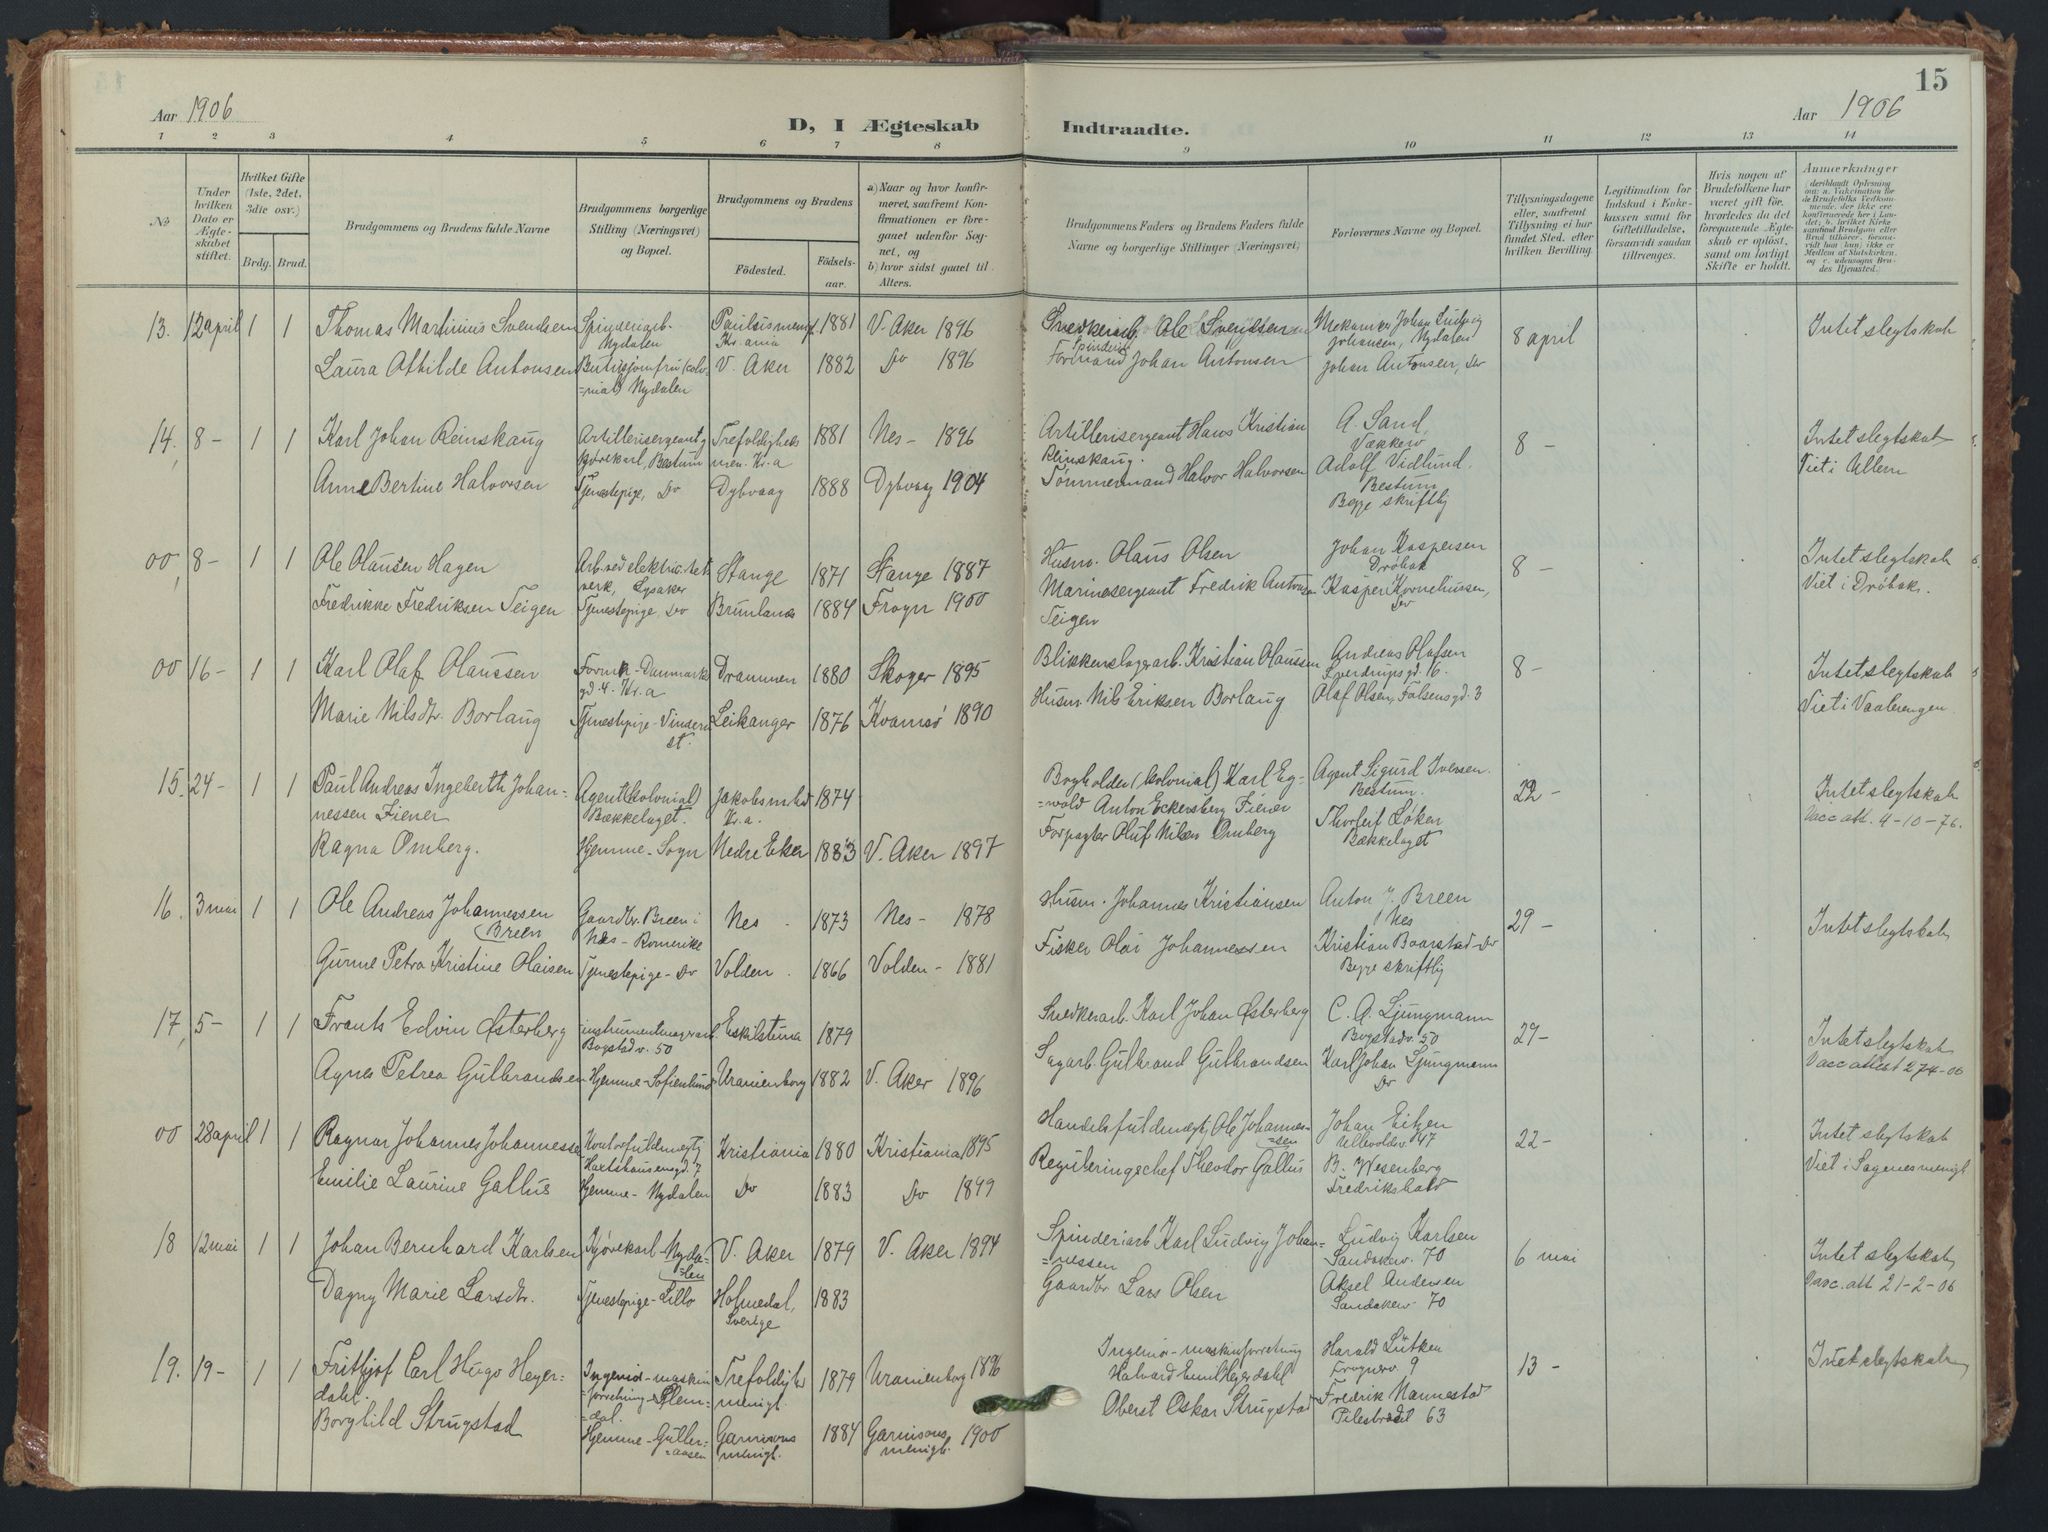 15
Aar 1906
D, I Ægteskab Indtraadte.
Aar 1906
1 2 3 4 5 6 7 8 9 10 11 12 13 14
№
Under hvilken Dato er Ægteskabet stiftet.
Hvilket Gifte (1ste, 2det, 3die osv.)
Brdg. Brud.
Brudgommens og Brudens fulde Navne
Brudgommens borgerlige Stilling (Næringsvei) og Bopæl.
Brudgommens og Brudens
Födested.
Födselsaar.
a) Naar og hvor konfirmeret, saafremt Konfirmationen er foregaaet udenfor Sognet, og
b) hvor sidst gaaet til Alters.
Brudgommens Faders og Brudens Faders fulde Navne og borgerlige Stillinger (Næringsvei)
Forlovernes Navne og Bopæl.
Tillysningsdagene eller, saafremt Tillysning ei har fundet Sted, efter hvilken Bevilling.
Legitimation for Indskud i Enkekassen samt for Giftetilladelse, forsaavidt saadan tiltrænges.
Hvis nogen af Brudefolkene har været gift før, hvorledes da det foregaaende Ægteskab er opløst, samt om lovligt Skifte er holdt.
Anmerkninger
13. 12 april 1 1 Thomas Martinius Svendsen Spinderiarb. Nydalen Paulusmenigh. Kr.ania 1881 V. Aker 1896 Snedkerarb. Ole Svendsen Mekaniker Johan Ludvig Johansen, Nydalen 8 april Intet slegtskab
Laura Athilde Antonsen Butikjomfru (kolonial) Nydalen V. Aker 1882 Do 1896 Spinderi Formand Johan Antonsen Johan Antonsen, Do
14, 8 - 1 1 Karl Johan Reinskaug Artillerisergeant og Kjørekarl, Bestum Trefoldigheds men. Kr.a 1881 Nes - 1896 Artillerisergeant Hans Kristian Reinskaug. A. Sand, Vækkerø 8 - Intet slegtskab
Viet i Ullern
Anne Bertine Halvorsen Tjenestepige, Do Dybvaag 1888 Dybvaag 1904 Tømmermand Halvor Halvorsen Adolf Vidlund. Bestum
Begge skriftlig
00, 8 - 1 1 Ole Olausen Hagen Arb. ved elektricitetverk, Lysaker Stange 1871 Stange 1887 Husm. Olaus Olsen Johan Kaspersen Drøbak 8 - Intet slegtskab
Viet i Drøbak.
Fredrikke Fredriksen Teigen Tjenestepige, Do Brunlanes 1884 Frogn 1900 Marinesergeant Fredrik Antonsen Teigen Kasper Korneliussen, Do
00 16 - 1 1 Karl Olaf Olaussen Danmarksgd. 4. Kr.a Drammen 1880 Skoger 1895 Blikkenslagerarb. Kristian Olaussen Andreas Olafsen Sverdrupsgd. 16. 8 - Intet slegtskab
Viet i Vaalerengen.
Marie Nilsdtr. Borlaug Tjenestepige - Vinderen st. Leikanger 1876 Kvamsø 1890 Husm. Nils Eriksen Borlaug Olaf Olsen, Falsensgd. 3
15. 24 - 1 1 Paul Andreas Ingeberth Johannessen Fiener Agent (kolonial) Bækkelaget. Jakobsmenighed Kr.a. 1874 Bogholder (kolonial) Karl Egwold Anton Eckersberg Fiener Agent Sigurd Iversen. Bestum. 22 - Intet slegtskab
Vacc att. 4-10-76.
Ragna Omberg. Hjemme - Sogn Nedre Eker 1883 V. Aker 1897 Forpagter Oluf Nilsen Omberg Thorleif Løken Bækkelaget
16. 3 mai 1 1 Ole Andreas Johannessen Breen Gaardbr. Breen i Nes - Romerike Nes 1873 Nes - 1878 Husm. Johannes Kristiansen Anton J. Breen Nes 29 - Intet slegtskab
Gurine Petra Kristine Olaisen Tjenestepige - Do Volden 1866 Volden - 1881 Fisker Olai Johannessen Kristian Baarstad - Do
Begge skriftlig
17, 5 - 1 1 Frants Edvin Østerberg instrumentmagerarb. Bogstadv. 50 Eskilstuna 1879 Snedkerarb. Karl Johan Østerberg C. A. Ljungmann Bogstadv. 50 29 - Intet slegtskab
Vacc attest 27/4-06
Agnes Petrea Gulbrandsen Hjemme - Sofienlund Uranienborg 1882 V. Aker 1896 Sagarb. Gulbrand Gulbrandsen Karl Johan Ljungmann Do
00 28 april 1 1 Ragnar Johannes Johannessen Kontorfuldmegtig 7 Kristiania 1880 Kristiania 1895 Handelsfuldmegtig Ole Johannessen Johan Eitzen Ullevoldsv. 47 22 - Intet slegtskab
Viet i Sagenes menigh.
Emilie Laurine Gallus Hjemme - Nydalen Do 1883 Do 1899 Reguleringschef Theodor Gallus B. Wesenberg Fredrikshald
18 12 mai 1 1 Johan Bernhard Karlsen Kjørekarl - Nydalen V. Aker 1879 V. Aker 1894 Spinderiarb Karl Ludvig Johannessen Ludvig Karlsen Sandakerv. 70 6 mai Intet slegtskab
Vacc. att 21-2-06
Dagny Marie Larsdtr. Tjenestepige - Lillo Holmedal, Sverige 1883 Gaardbr Lars Olsen Aksel Andersen Sandakerv. 70
19. 19 - 1 1 Frithjof Carl Hugo Heyerdahl. Ingeniør - maskinforretning - Slemdal. Trefoldighedsmenigh. 1879 Uranienborg 1896 Ingeniør - maskinforretning Halvard Emil Heyerdahl Harald Lütken Frognerv. 9 13 - Intet slegtskab
Borghild Strugstad Hjemme - Gulleraasen Garnisonsmenigh. 1884 Garnisonsmenigh. 1900 Oberst Oskar Strugstad Fredrik Nannestad Pilestrædet 63